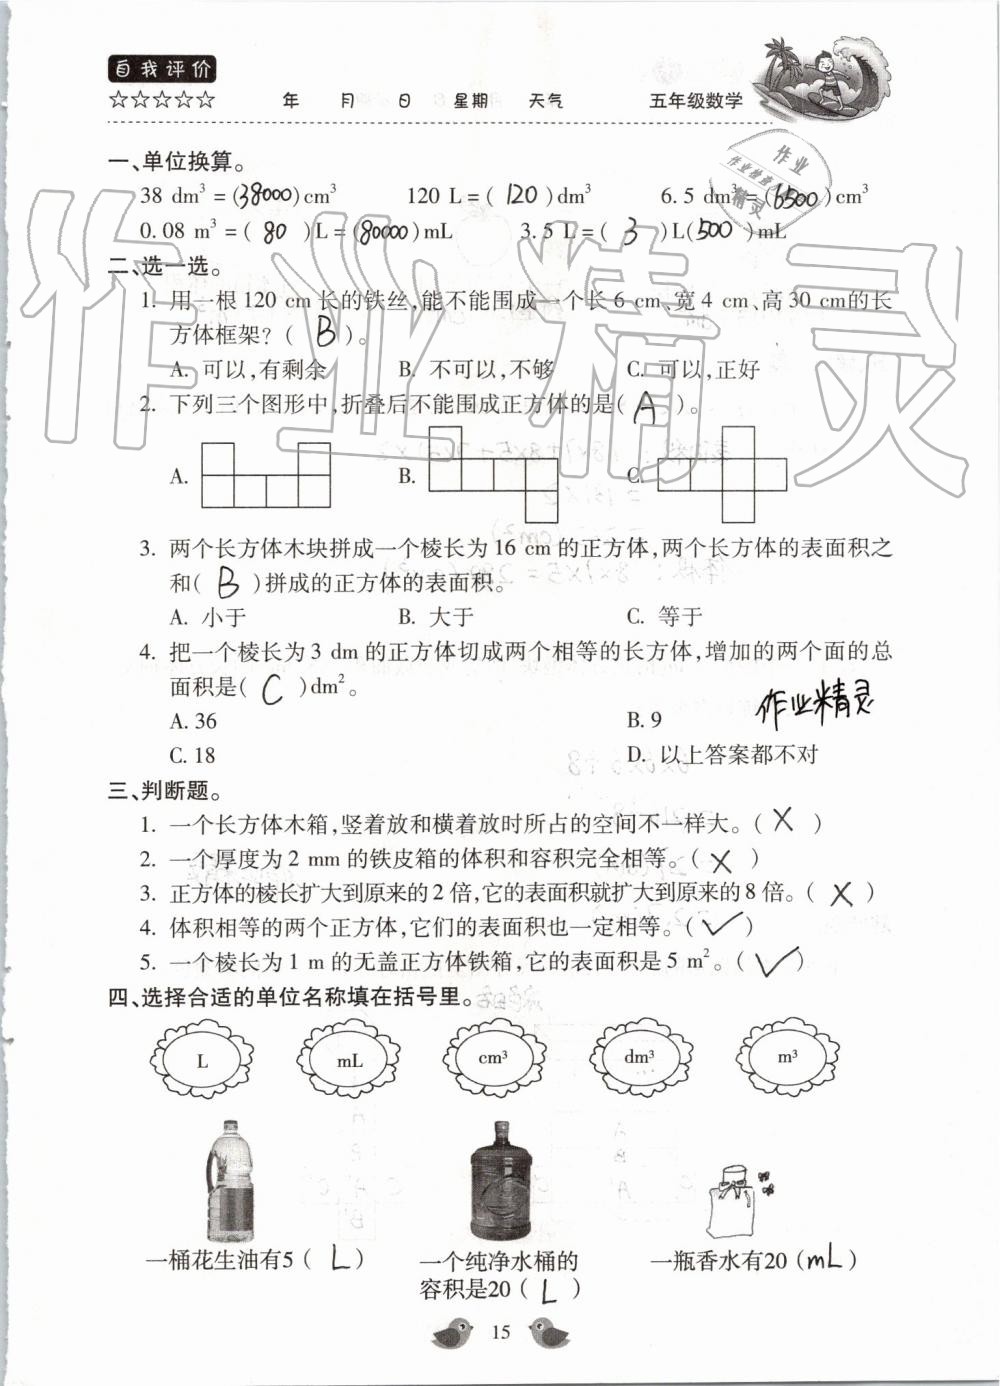 自我评价
☆☆☆☆☆ 年 月 日 星期 天气 五年级数学
作业
作业检查
精灵
一、单位换算。
38 dm³ = (38000)cm³ 120 L = ( 120 )dm³ 6.5 dm³ = (6500)cm³
0.08 m³ = ( 80 )L = (80000)mL 3.5 L = ( 3 )L(500)mL
二、选一选。
1. 用一根120 cm长的铁丝,能不能围成一个长6 cm、宽4 cm、高30 cm的长
方体框架? ( B )。
A. 可以,有剩余 B. 不可以,不够 C. 可以,正好
2. 下列三个图形中,折叠后不能围成正方体的是( A )。
A. B. C.
3. 两个长方体木块拼成一个棱长为16 cm的正方体,两个长方体的表面积之
和( B )拼成的正方体的表面积。
A. 小于 B. 大于 C. 等于
4. 把一个棱长为3 dm的正方体切成两个相等的长方体,增加的两个面的总
面积是( C )dm²。
A. 36 B. 9
作业精灵
C. 18 D. 以上答案都不对
三、判断题。
1. 一个长方体木箱,竖着放和横着放时所占的空间不一样大。( × )
2. 一个厚度为2 mm的铁皮箱的体积和容积完全相等。( × )
3. 正方体的棱长扩大到原来的2倍,它的表面积就扩大到原来的8倍。( × )
4. 体积相等的两个正方体,它们的表面积也一定相等。( ✓ )
5. 一个棱长为1 m的无盖正方体铁箱,它的表面积是5 m²。( ✓ )
四、选择合适的单位名称填在括号里。
L mL cm³ dm³ m³
一桶花生油有5 ( L ) 一个纯净水桶的 一瓶香水有20 (mL)
容积是20 ( L )
15
作业精灵